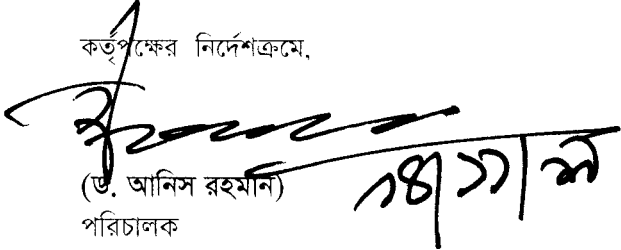 কর্তৃপক্ষের নির্দেশক্রমে,
(ড. আনিস রহমান)
পরিচালক